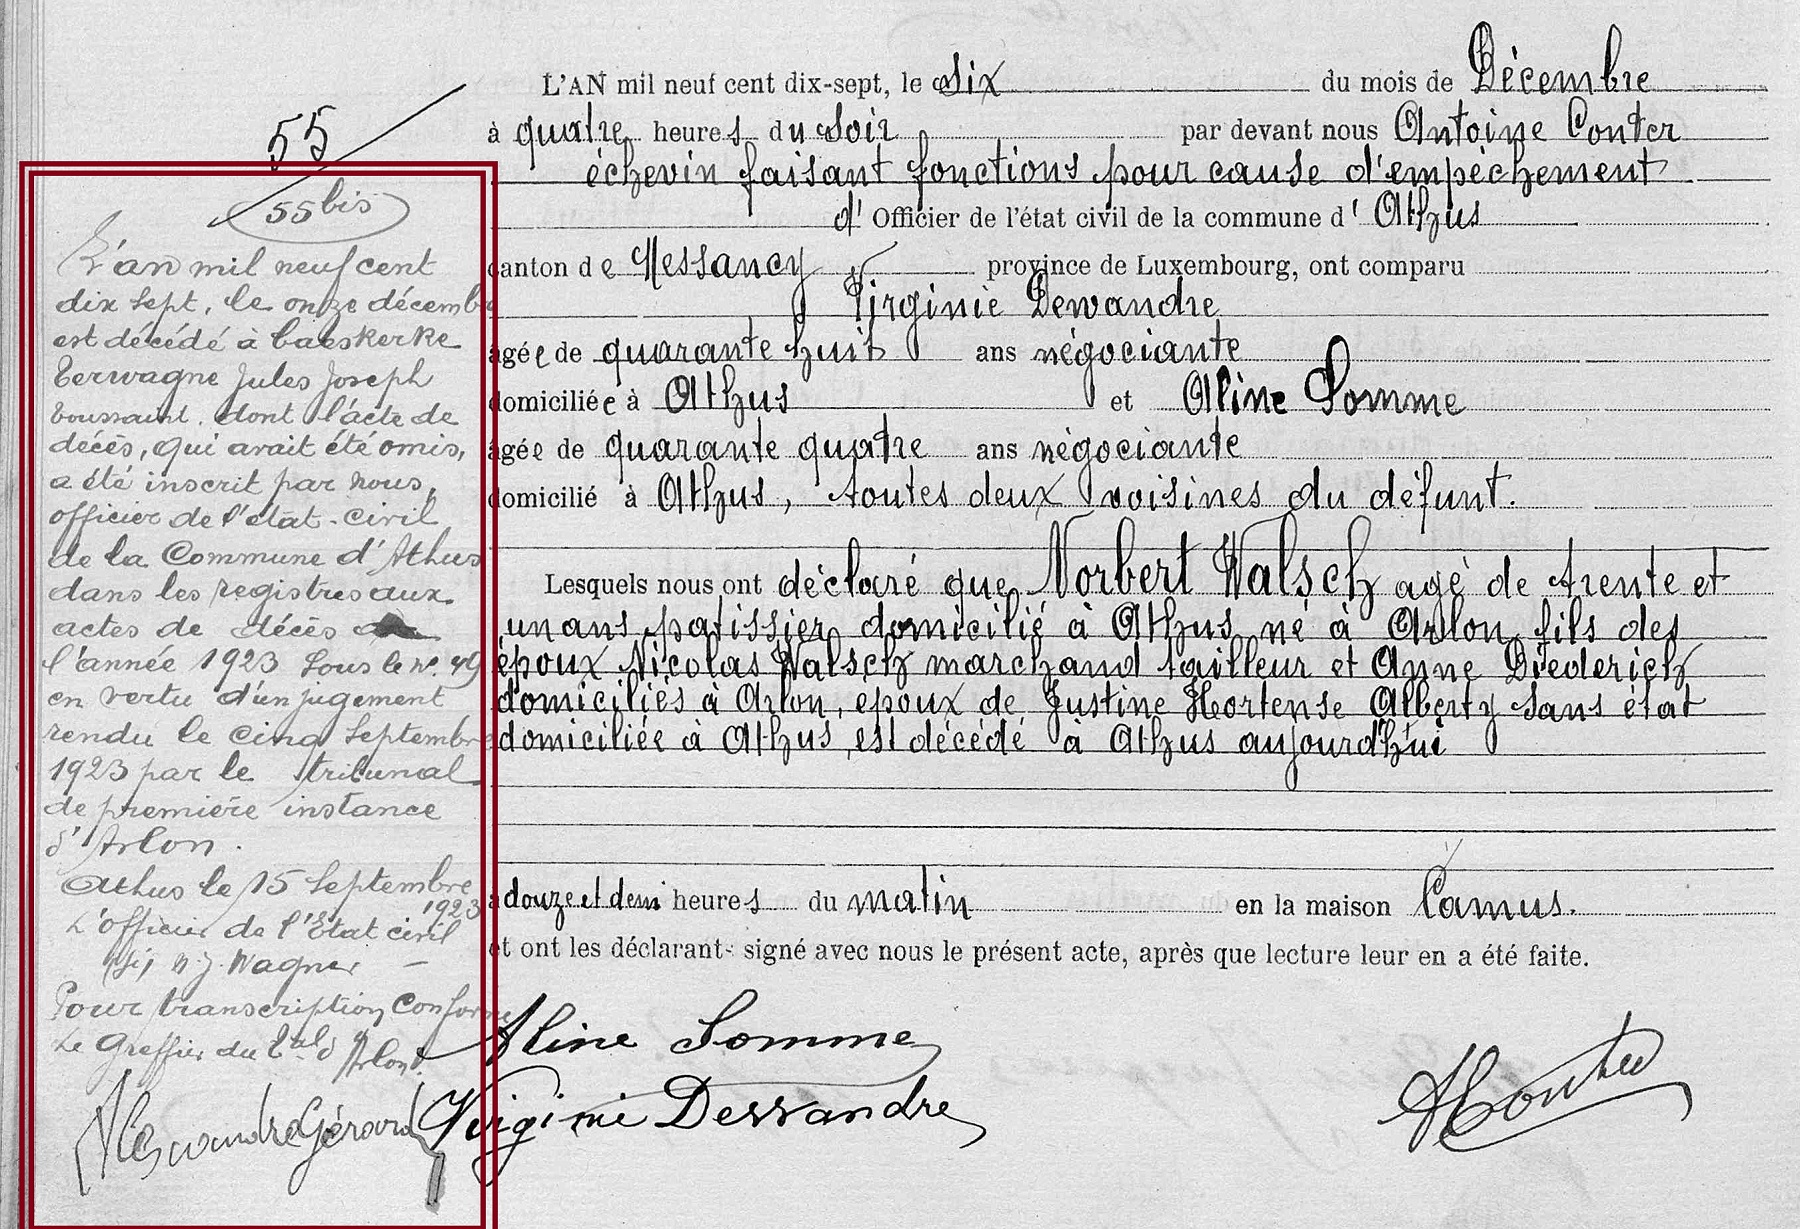 55
55 bis
L'an mil neuf cent
dix sept, le onze décembre
est décédé à Caeskerke
Terwagne Jules Joseph
Toussaint, dont l'acte de
décès, qui avait été omis,
a été inscrit par nous,
officier de l'état-civil
de la Commune d'Athus
dans les registres aux
actes de décès de
l'année 1923 sous le n°. 49
en vertu d'un jugement
rendu le cinq Septembre
1923 par le tribunal
de première instance
d'Arlon.
Athus le 15 Septembre
1923
L'officier de l'Etat civil
(s) N. J. Wagner –
Pour transcription conforme
Le Greffier du Tal d'Arlon.
Alexandre Gérard
L'AN mil neuf cent dix-sept, le six du mois de Décembre
à quatre heures du soir par devant nous Antoine Conter
échevin faisant fonctions pour cause d'empéchement
d' Officier de l'état civil de la commune d' Athus
canton de Messancy province de Luxembourg, ont comparu
Virginie Dewandre
agée de quarante huit ans négociante
domiciliée à Athus et Aline Somme
agée de quarante quatre ans négociante
domicilié à Athus, toutes deux voisines du défunt.
Lesquels nous ont déclaré que Norbert Walsch agé de trente et
un ans patissier domicilié à Athus né à Arlon fils des
époux Nicolas Walsch marchand tailleur et Anne Diederich
domiciliés à Arlon, epoux de Justine Hortense Alberty sans état
domiciliée à Athus est décédé à Athus aujourd'hui
à douze et demi heures du matin en la maison Camus.
et ont les déclarant signé avec nous le présent acte, après que lecture leur en a été faite.
Aline Somme
Virginie Dewandre
A Conter